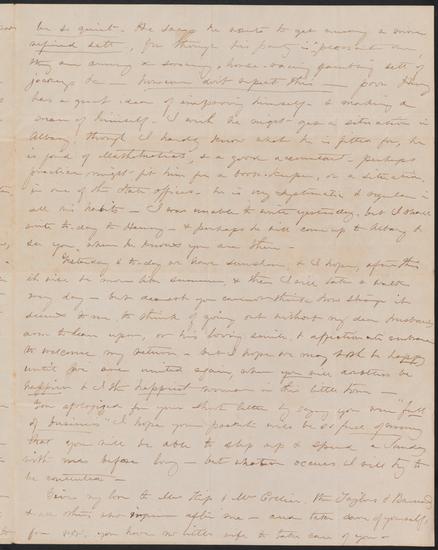 be so quiet. He says he wants to get among a more
refined sett, for though his party is pleasant men,
they are among a society, horse-racing gambling sett of
jockeys &c - however dont repeat this - poor Harry
has a great idea of improving himself & making a
man of himself. I wish he might get a situation in
Albany though I hardly know what he is fitted for, he
is fond of Mathematics, & a good accountant - perhaps
practice might fit him for a book-keeper, or a situation
in one of the State offices - he is very systematic & regular in
all his habits - I was unable to write yesterday, but I shall
write to day to Harry - & perhaps he will come up to Albany to
see you, when he knows you are there -
Yesterday & to day we have sunshine, & I hope, after this
it will be more like summer, & then I will take a walk
every day - but dearest you cannot think how strange it
seems to me, to think of going out without my dear husband's
arm to lean upon, or his loving smile, & affectionate embrace
to welcome my return - but I hope we may both be happy
until we are united again, when you will doubtless be
happier & I the happiest woman in this little town -
You apologized for your short letter by saying you were "full
of business" I hope your pockets will be as full of money
that you will be able to step up & spend a Sunday
with me before long - but whatever occurs I will try to
be contented -
Give my love to Mr & Mr Collier, the Taylors & Barnard
& all others who inquire after me - and take care of yourself,
for now, you have no little wife to take care of you -